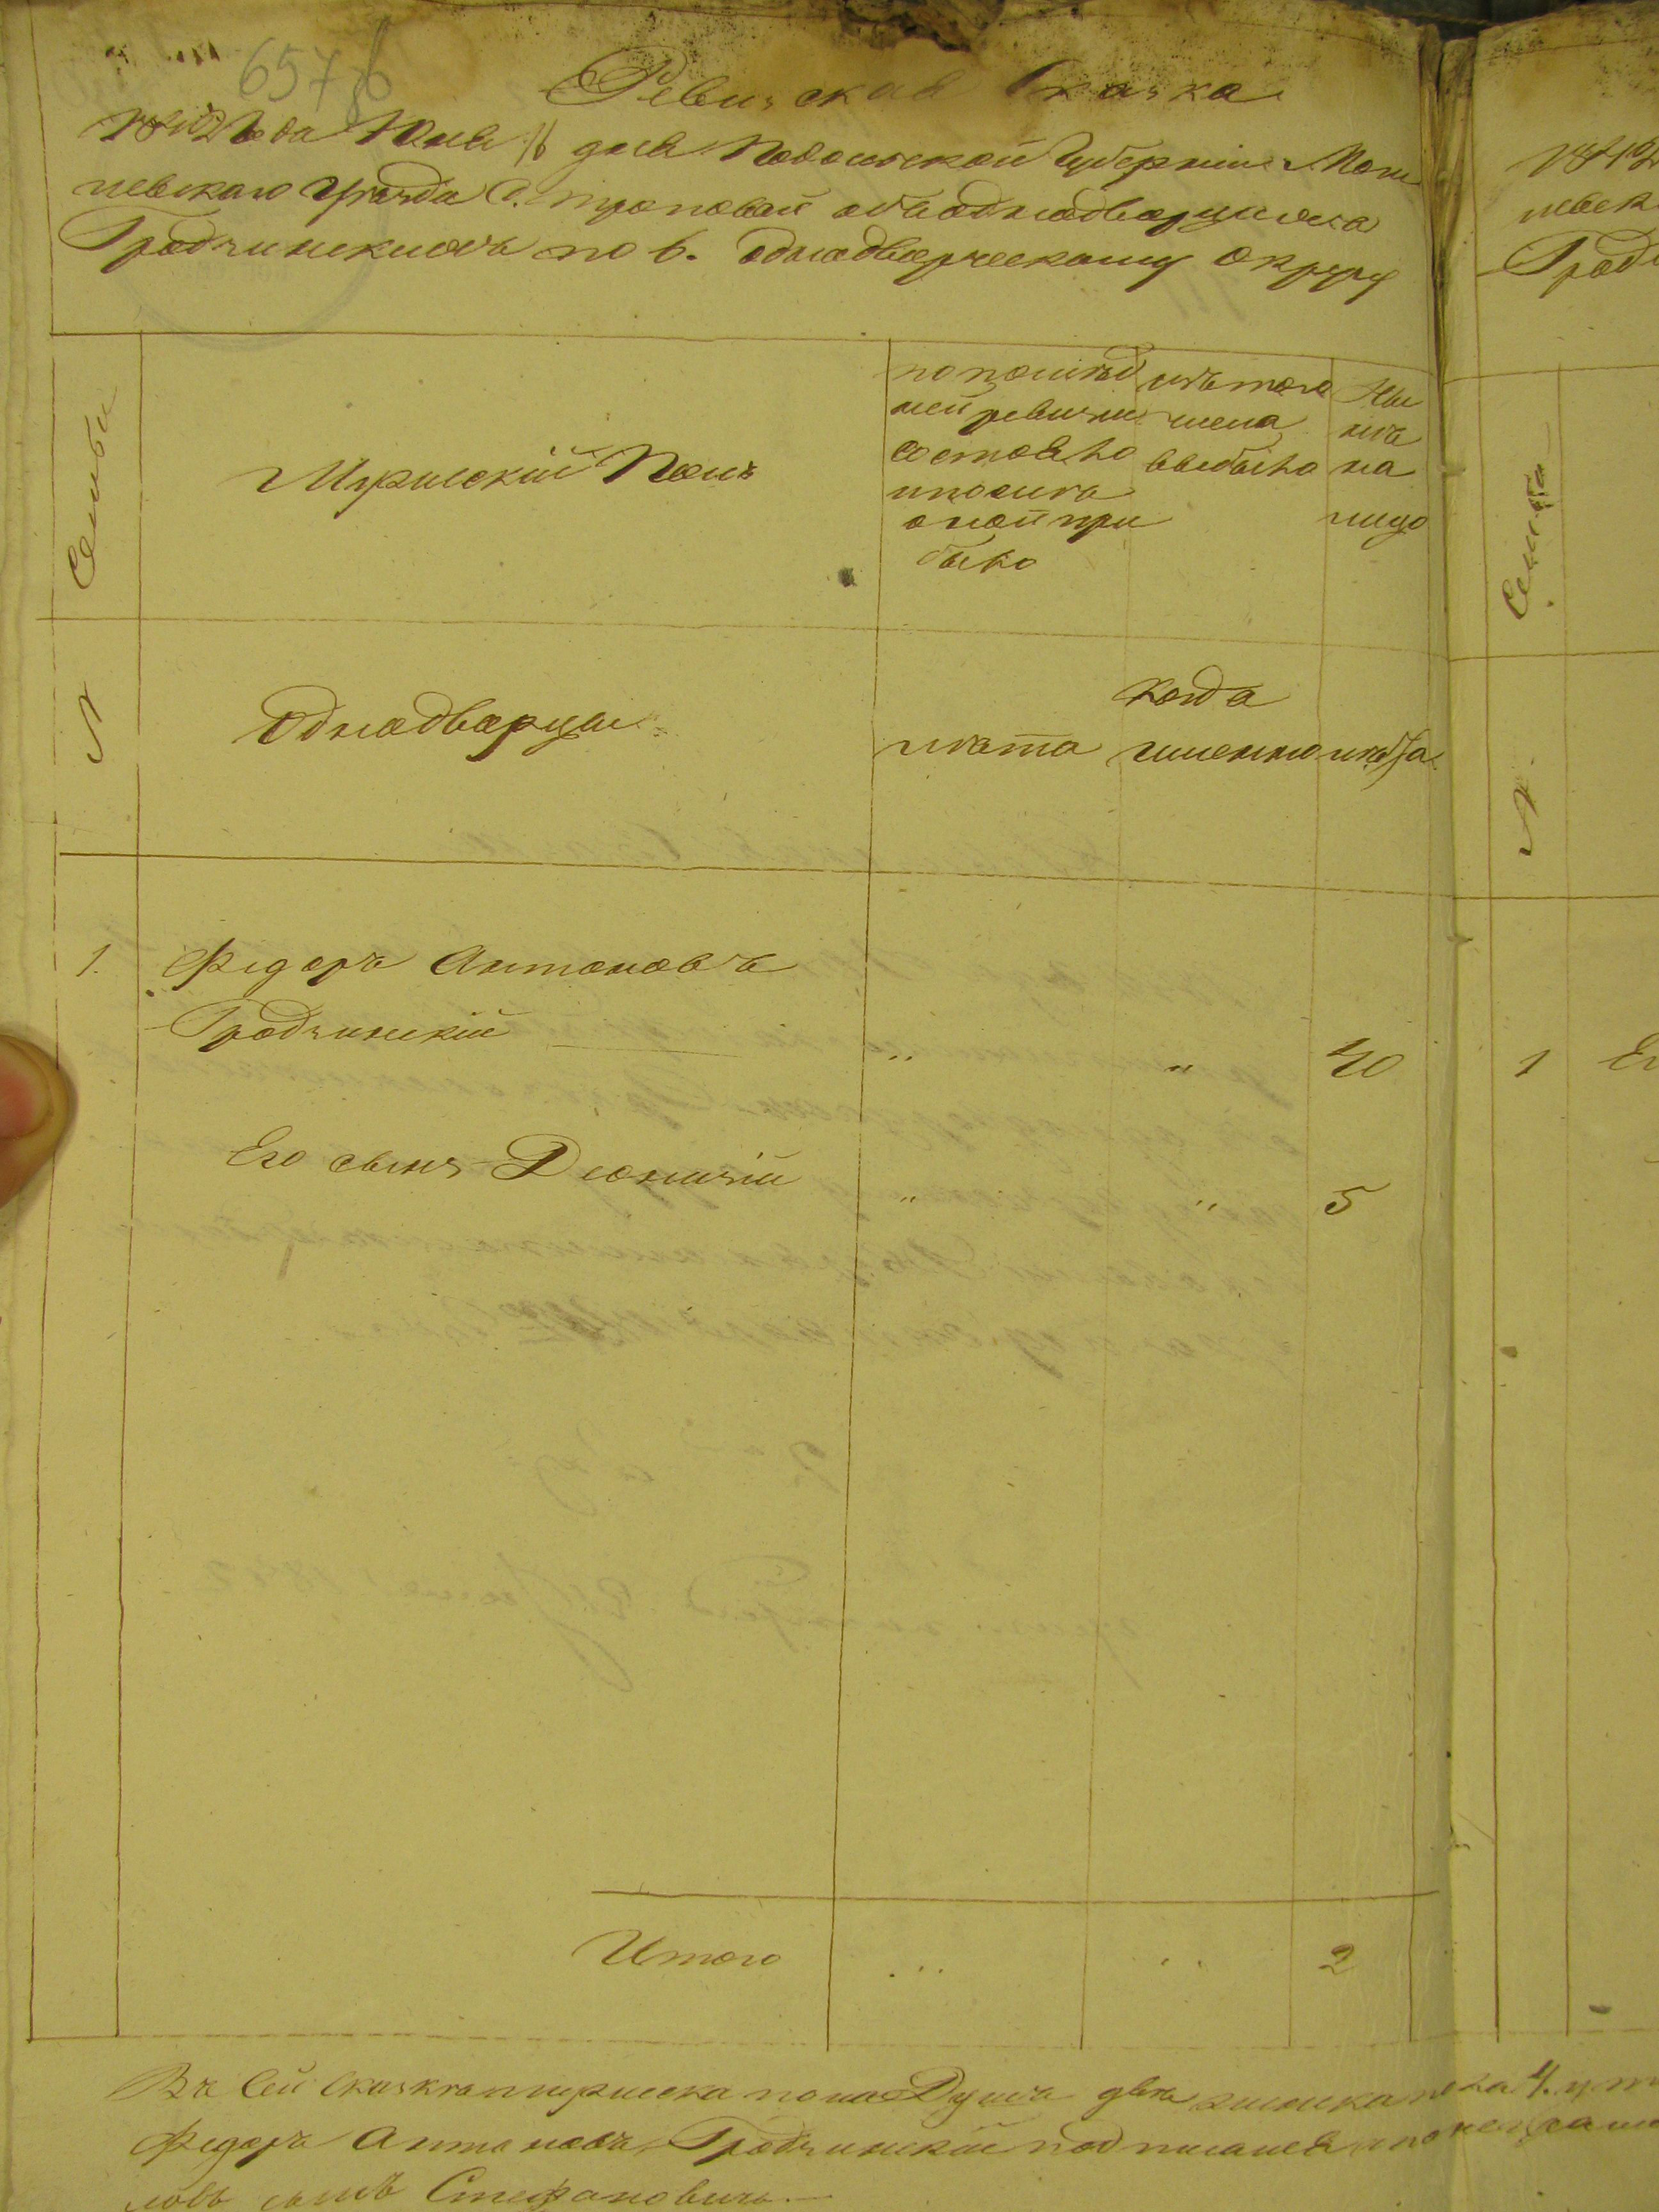 657
Ревизская Сказка
1842 года Юня 16 дня Подольской Губерніи Мог
левскаго Уезда С. троповой объ однодворцахъ
Гродзинскихъ по 6. Однодворческому Округу
Семьи
№
Мужескій Полъ
по послѣд
ней ревизіи
состояло
и после
оной при
было
изъ того
числа
выбыло
Ны
нѣ
на
лицо
Однодворцы
когда
лѣта именно лѣта
1. Федоръ Антоновъ
Гродзинскій „ „ 40
Его сынъ Деонизій „ „ 5
Итого „ „ 2
Въ сей Сказкѣ мужеска пола Душъ двѣ женска пола 4.
Федоръ Антоновъ Гродзинскій подписался
сынъ Стефановичъ.
1842
Семья
№
1